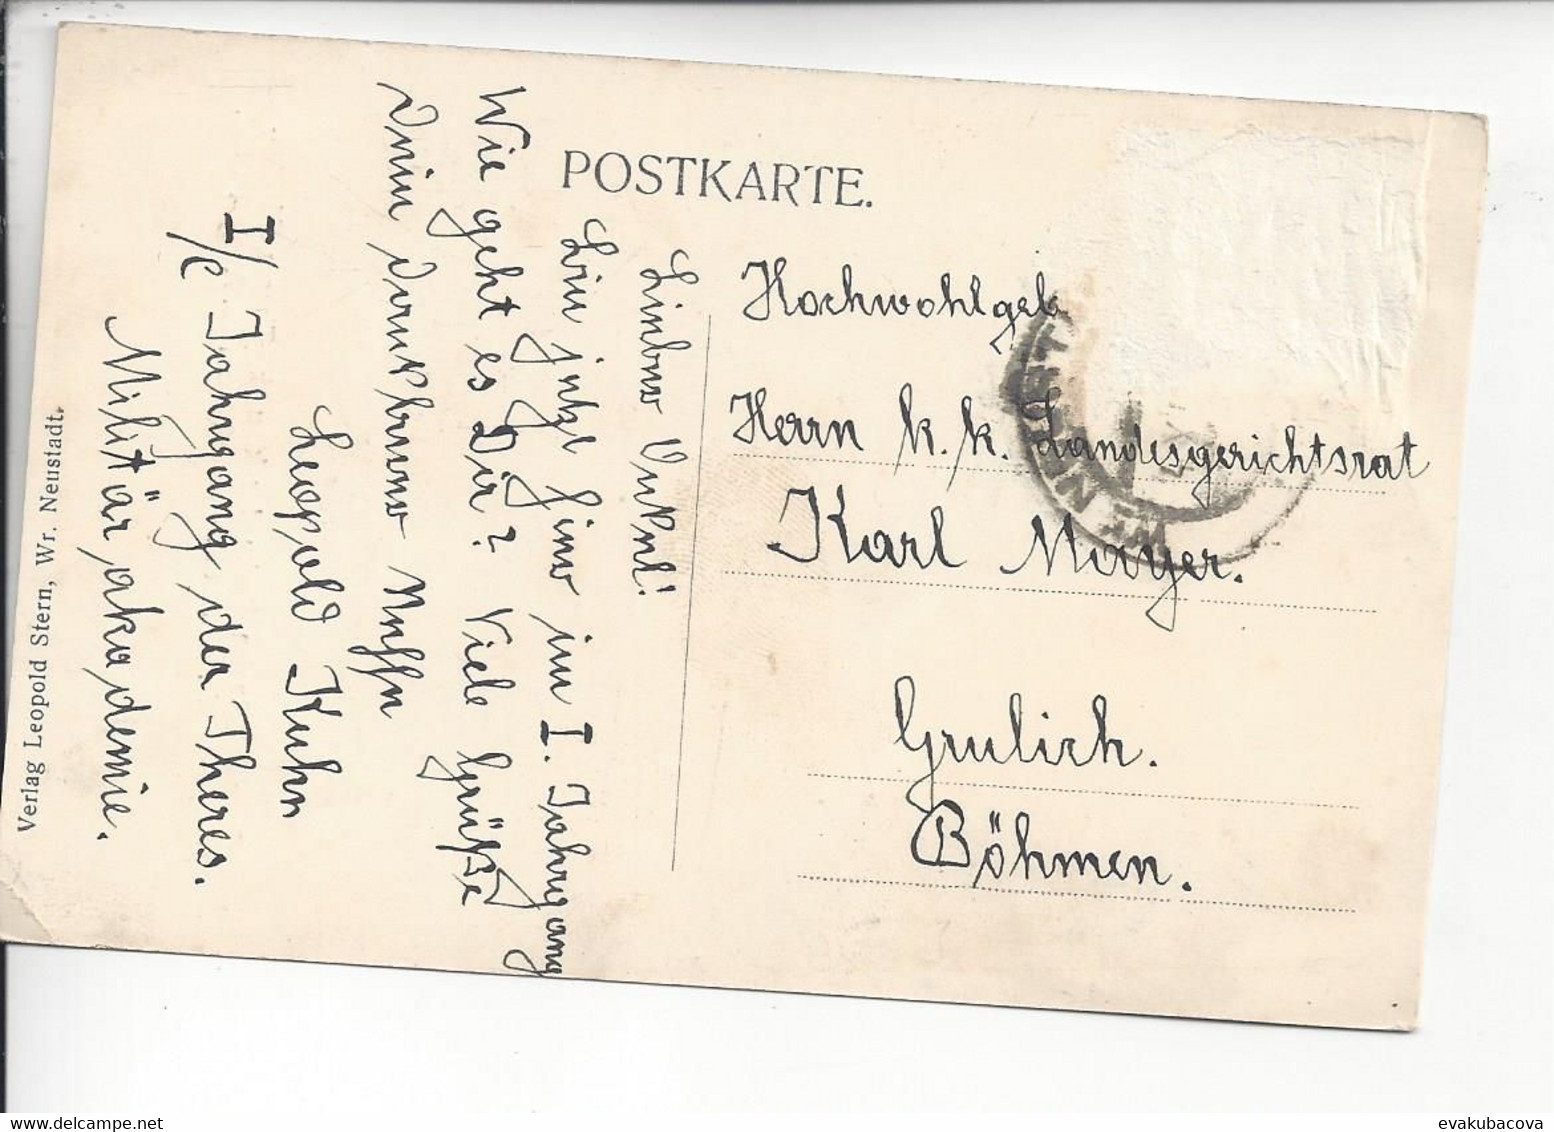 POSTKARTE.
Lieber Onkel!
Bin jetzt hier im I. Jahrgang
Wie geht es Dir? Viele Grüße
Dein dankbarer Neffe
Leopold Kuhn
I/c Jahrgang der Theres.
Militärakademie.
Hochwohlgeb
Herrn k. k. Landesgerichtsrat
Karl Mayer.
Grulich.
Böhmen.
Verlag Leopold Stern, Wr. Neustadt.
evakubacova